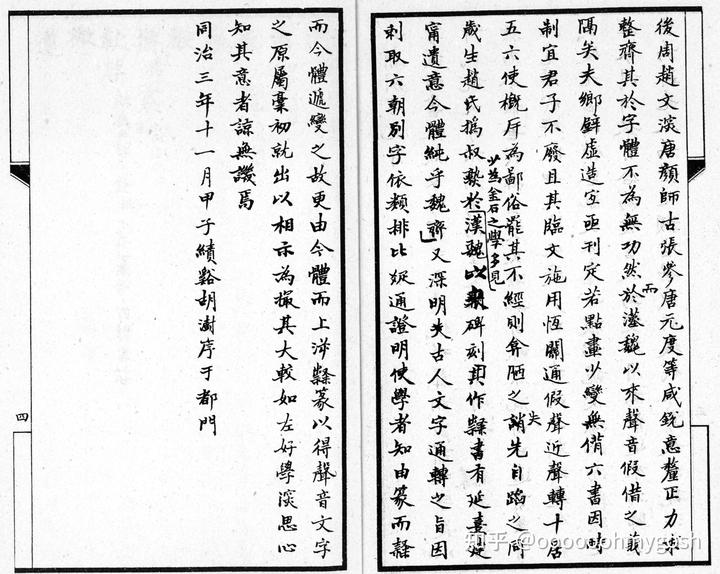 後周趙文深唐顏師古張參唐元度等咸銳意釐正力求
整齊其於字體不為無功然於漢魏以來聲音假借之義
而
隔矣夫鄉壁虛造宜亟刊定若點畫少變無偝六書因時
制宜君子不廢且其臨文施用恆關通假聲近聲轉十居
失
五六使概斥為鄙俗罷其不經則弇陋之誚先自蹈之同
少為金石之學多見
歲生趙氏撝叔埶於漢魏以來碑刻其作隸書有延熹建
甯遺意今體純乎魏齊又深明夫古人文字通轉之旨因
刺取六朝別字依類排比疏通證明使學者知由篆而隸
而今體遞變之故更由今體而上溯隸篆以得聲音文字
之原屬稾初就出以相示為撮其大較如左好學深思心
知其意者諒無譏焉
同治三年十一月甲子績谿胡澍序于都門
四
知乎 @ooooohmygosh